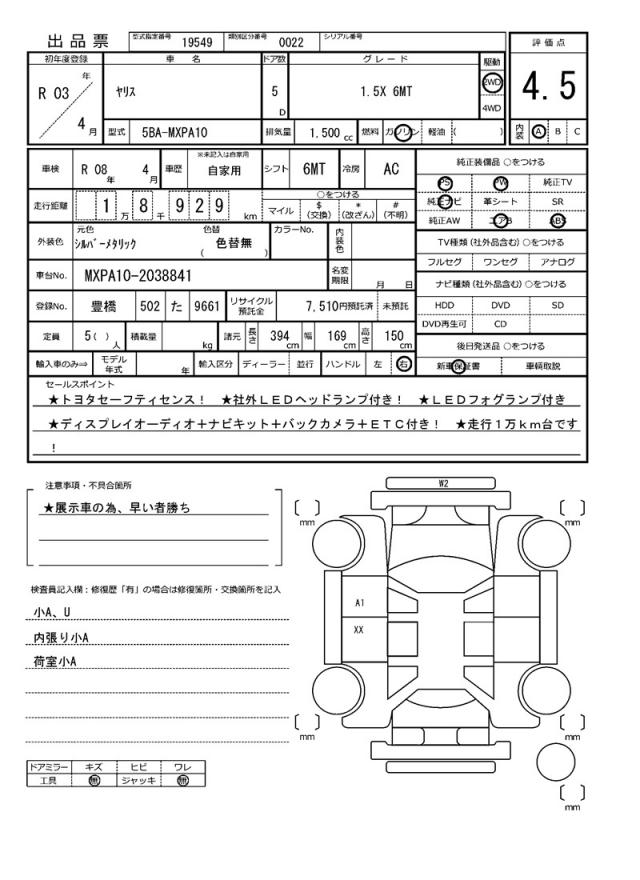 出品票 型式指定番号 19549 類別区分番号 0022 シリアル番号
評価点
4.5
内装 A B C
初年度登録 車名 ドア数 グレード 駆動
R 03 年 4 月 ヤリス 5 D 1.5X 6MT 2WD 4WD
型式 5BA-MXPA10 排気量 1.500 cc 燃料 ガソリン 軽油 ( )
車検 R 08 年 4 月 車歴 ※未記入は自家用 自家用 シフト 6MT 冷房 AC
走行距離 1 万 8 千 9 2 9 km ○をつける マイル $ (交換) * (改ざん) # (不明)
外装色 元色 シルバーメタリック 色替 ( 色替無 ) カラーNo. 内装色
車台No. MXPA10-2038841 名変期限 月 日
登録No. 豊橋 502 た 9661 リサイクル預託金 7,510円預託済 未預託
定員 5( ) 人 積載量 kg 諸元 長さ 394 cm 幅 169 cm 高さ 150 cm
輸入車のみ⇒ モデル年式 年 輸入区分 ディーラー 並行 ハンドル 左 右
純正装備品 ○をつける
PS PW 純正TV
純正ナビ 革シート SR
純正AW エアB ABS
TV種類(社外品含む)○をつける
フルセグ ワンセグ アナログ
ナビ種類(社外品含む)○をつける
HDD DVD SD
DVD再生可 CD
後日発送品 ○をつける
新車保証書 車輌取説
セールスポイント
★トヨタセーフティセンス! ★社外LEDヘッドランプ付き! ★LEDフォグランプ付き
★ディスプレイオーディオ+ナビキット+バックカメラ+ETC付き! ★走行1万km台です
!
注意事項・不具合箇所
★展示車の為、早い者勝ち
検査員記入欄:修復歴「有」の場合は修復箇所・交換箇所を記入
小A、U
内張り小A
荷室小A
ドアミラー キズ ヒビ ワレ
工具 無 ジャッキ 無
W2
[ ] mm
[ ] mm
A1
XX
[ ] mm
[ ] mm
[ ] mm